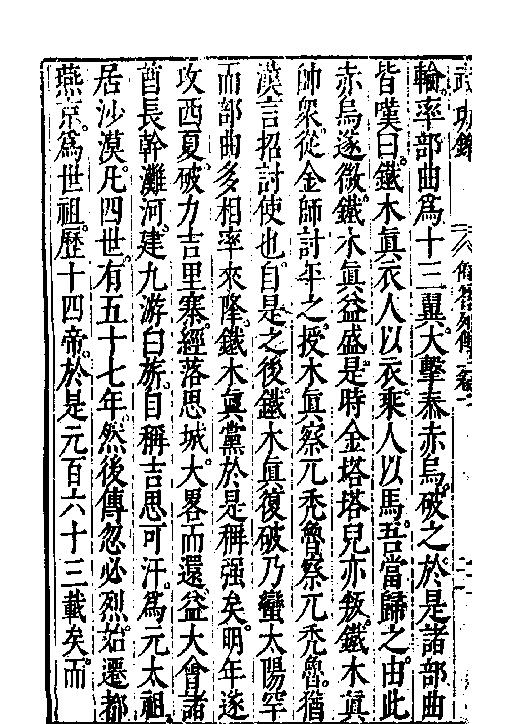 武功錄
輪率部曲爲十三翼大擊泰赤烏破之於是諸部曲
皆嘆曰鐵木眞衣人以衣乘人以馬吾當歸之由此
赤烏遂微鐵木眞益盛是時金塔塔兒亦叛鐵木眞
帥衆從金師討平之授木眞察兀禿魯察兀禿魯猶
漢言招討使也自是之後鐵木眞復破乃蠻太陽罕
而部曲多相率來降鐵木眞黨於是稱强矣明年遂
攻西夏破力吉里寨經落思城大畧而還益大會諸
酋長幹灘河建九游白旂自稱吉思可汗爲元太祖
居沙漠凡四世有五十七年然後傳忽必烈始遷都
燕京爲世祖歷十四帝於是元百六十三載矣而